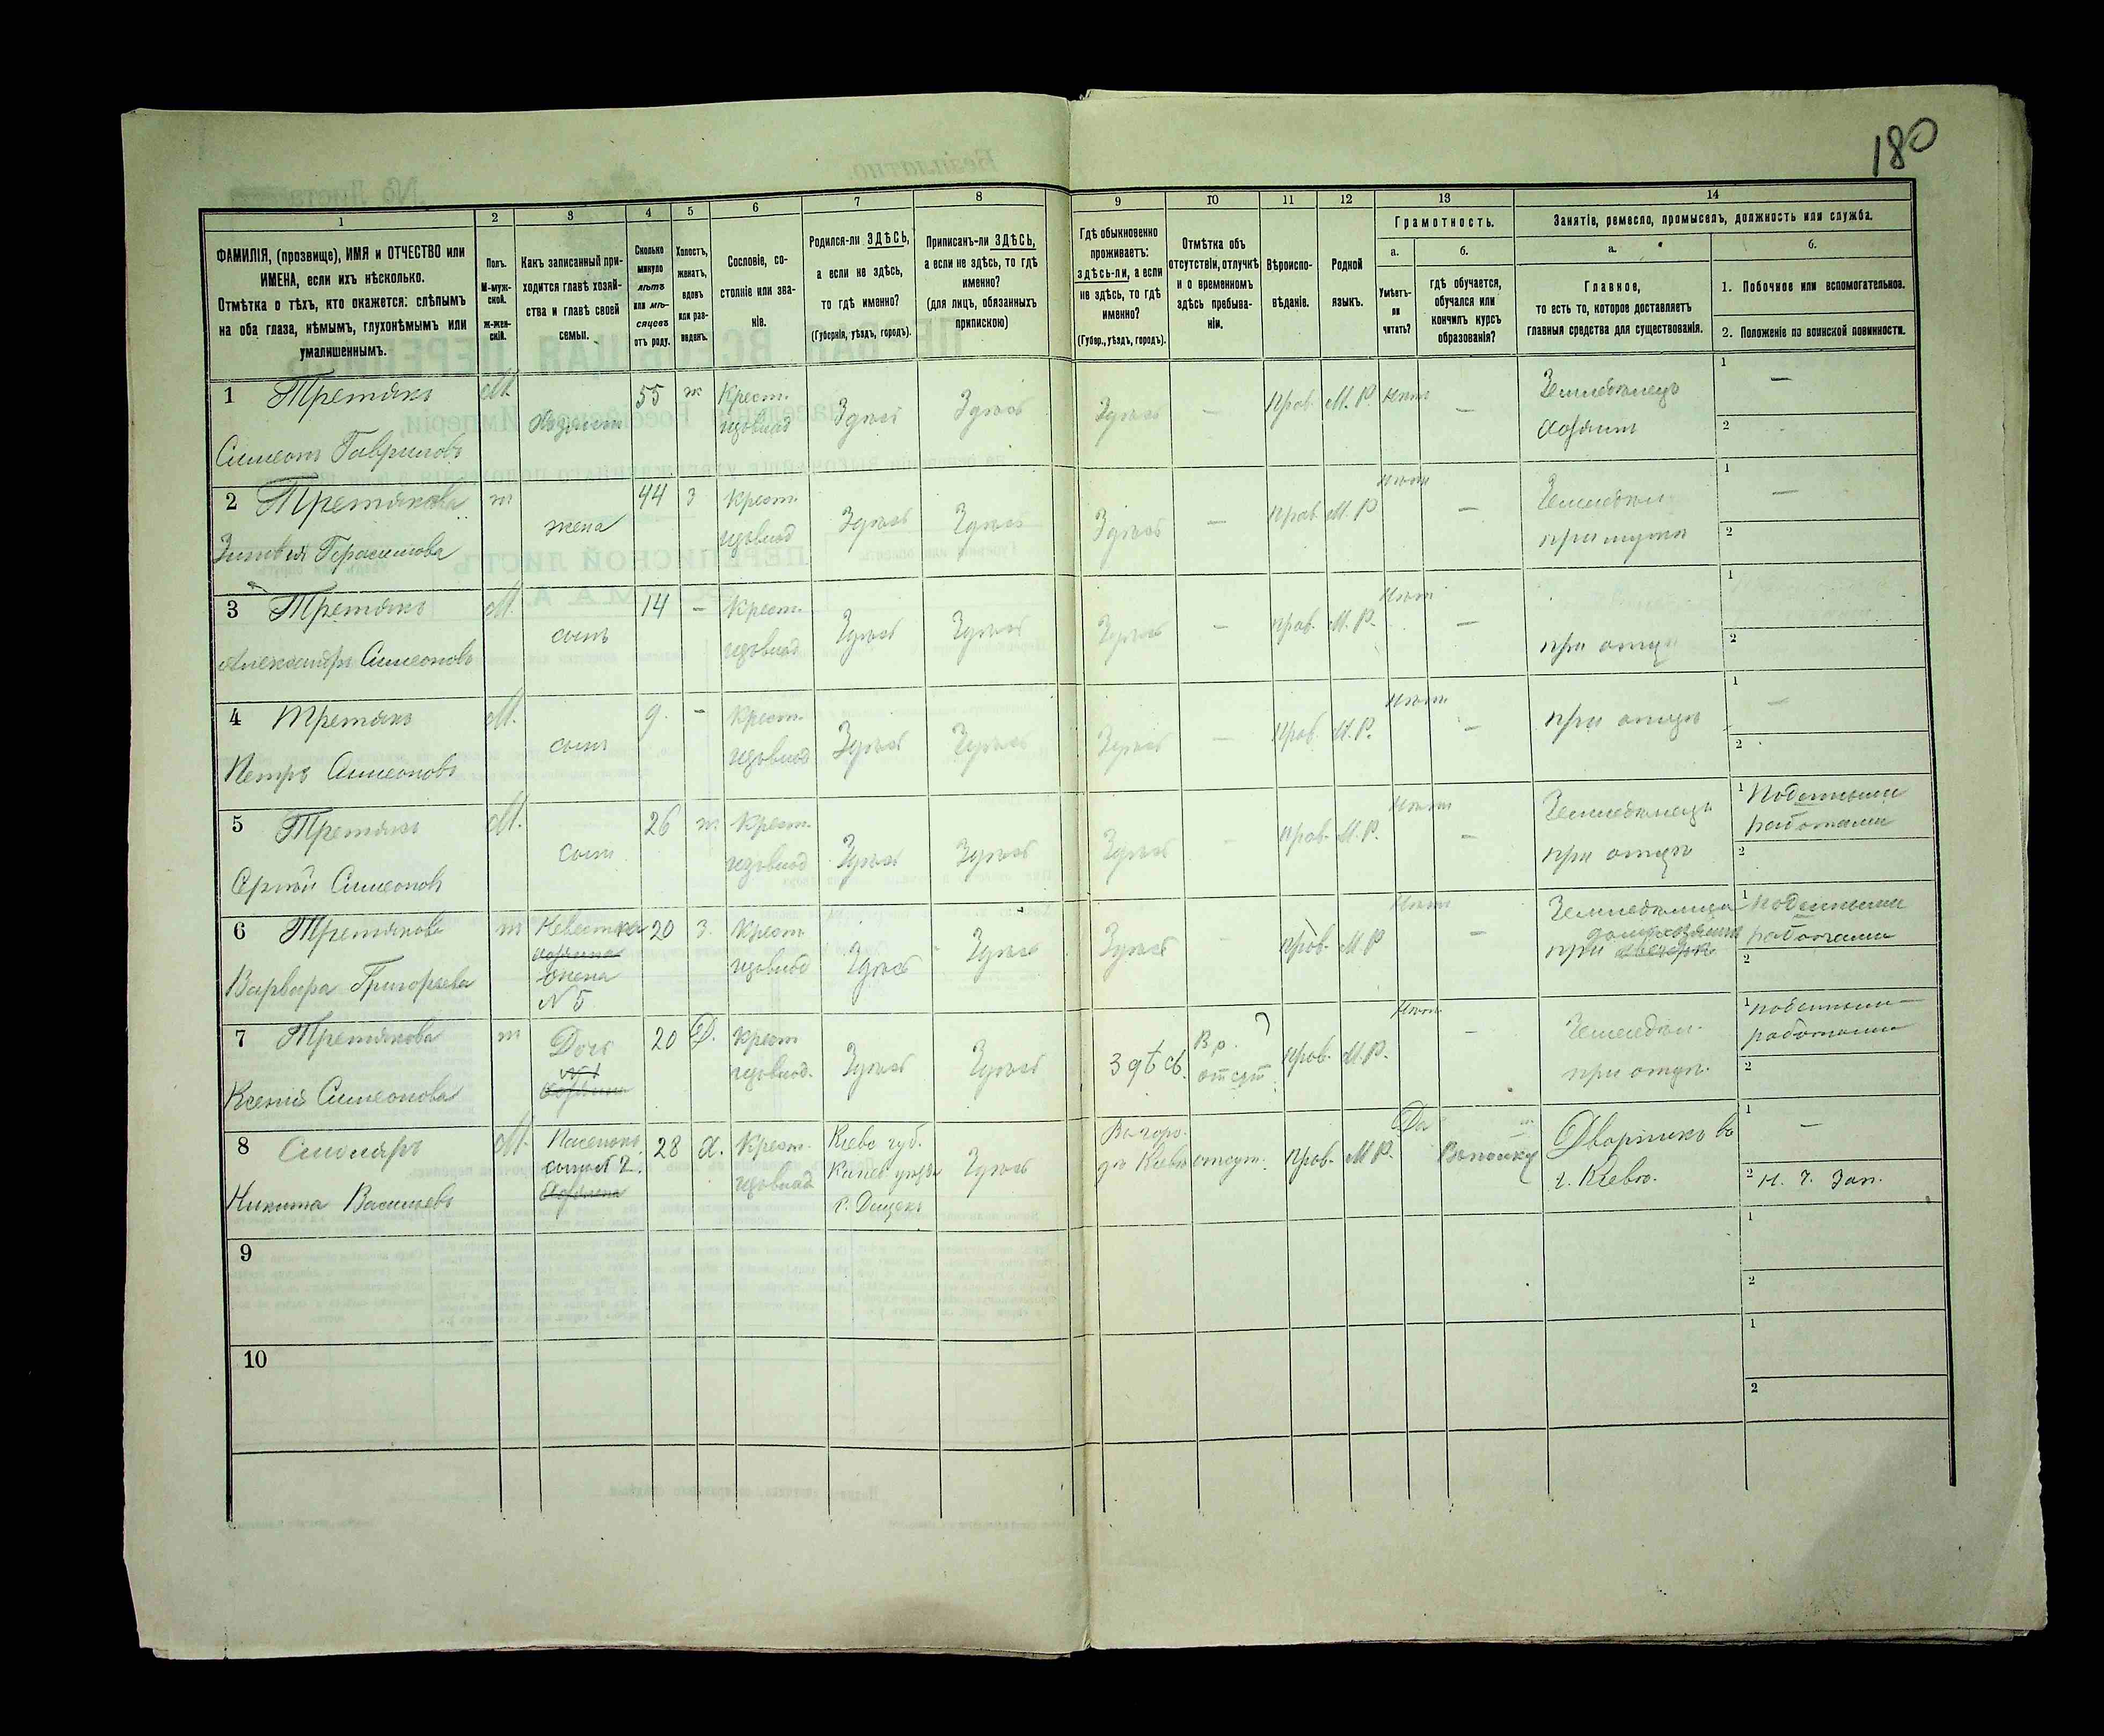 180
1
2
3
4
5
6
7
8
9
10
11
12
13
14
ФАМИЛІЯ, (прозвище), ИМЯ и ОТЧЕСТВО или
ИМЕНА, если ихъ нѣсколько.
Отмѣтка о тѣхъ, кто окажется: слѣпымъ
на оба глаза, нѣмымъ, глухонѣмымъ или
умалишеннымъ.
Полъ.
М-муж-
ской.
ж-жен-
скій.
Какъ записанный при-
ходится главѣ хозяй-
ства и главѣ своей
семьи.
Сколько
минуло
лѣтъ
или мѣ-
сяцевъ
отъ роду.
Холостъ,
женатъ,
вдовъ
или раз-
веденъ.
Сословіе, со-
стояніе или зва-
ніе.
Родился-ли ЗДѢСЬ,
а если не здѣсь,
то гдѣ именно?
(Губернія, уѣздъ, городъ).
Приписанъ-ли ЗДѢСЬ,
а если не здѣсь, то гдѣ
именно?
(для лицъ, обязанныхъ
припискою)
Гдѣ обыкновенно
проживаетъ:
здѣсь-ли, а если
не здѣсь, то гдѣ
именно?
(Губер., уѣздъ, городъ).
Отмѣтка объ
отсутствіи, отлучкѣ
и о временномъ
здѣсь пребыва-
ніи.
Вѣроиспо-
вѣданіе.
Родной
языкъ.
Грамотность.
а.
Умѣетъ-
ли
читать?
б.
гдѣ обучается,
обучался или
кончилъ курсъ
образованія?
Занятіе, ремесло, промыселъ, должность или служба.
а.
Главное,
то есть то, которое доставляетъ
главныя средства для существованія.
б.
1. Побочное или вспомогательное.
2. Положеніе по воинской повинности.
1 Третякъ
Симеонъ Гавриловъ
М. Хозяинъ 55 ж Крест.
Здѣсь Здѣсь Здѣсь — Прав. М.Р. Нѣтъ —
Земледѣлецъ
хозяинъ
1 —
2
2 Третякова
Зиновія Герасимова
ж жена 44 з Крест.
Здѣсь Здѣсь Здѣсь — Прав. М.Р. Нѣтъ —
Земледѣл.
при мужѣ
1 —
2
3 Третякъ
Александръ Симеоновъ
М. сынъ 14 — Крест.
Здѣсь Здѣсь Здѣсь — прав. М.Р. Нѣтъ —
при отцѣ
1
2
4 Третякъ
Петръ Симеоновъ
М. сынъ 9. — Крест.
Здѣсь Здѣсь Здѣсь — Прав. М.Р. Нѣтъ —
при отцѣ
1 —
2
5 Третякъ
Сергѣй Симеоновъ
М. сынъ 26 ж. Крест.
Здѣсь Здѣсь Здѣсь — прав. М.Р. Нѣтъ —
Земледѣлецъ
при отцѣ
1 Поденными
работами
2
6 Третякова
Варвара Григорьева
ж Невестка
хозяина
жена
N 5
20 з. Крест.
Здѣсь Здѣсь Здѣсь — прав. М.Р Нѣтъ —
при
1 поденными
работами
2
7 Третякова
Ксенія Симеонова
ж Дочь
N 1
20 Д. Крест.
Здѣсь Здѣсь Здѣсь.
Вр.
отсут.
прав. М.Р. Нѣтъ —
Земледѣл.
при отцѣ.
1 поденными —
работами
2
8
Никита Васильевъ
М. 28 Х. Крест.
Кіевс. губ.
Здѣсь
Въ горо-
дѣ Кіевѣ отсут. прав. М.Р. Да
Дворникъ въ
г. Кіевѣ.
1 —
2 Н. Ч. Зап.
9
1
2
10
1
2